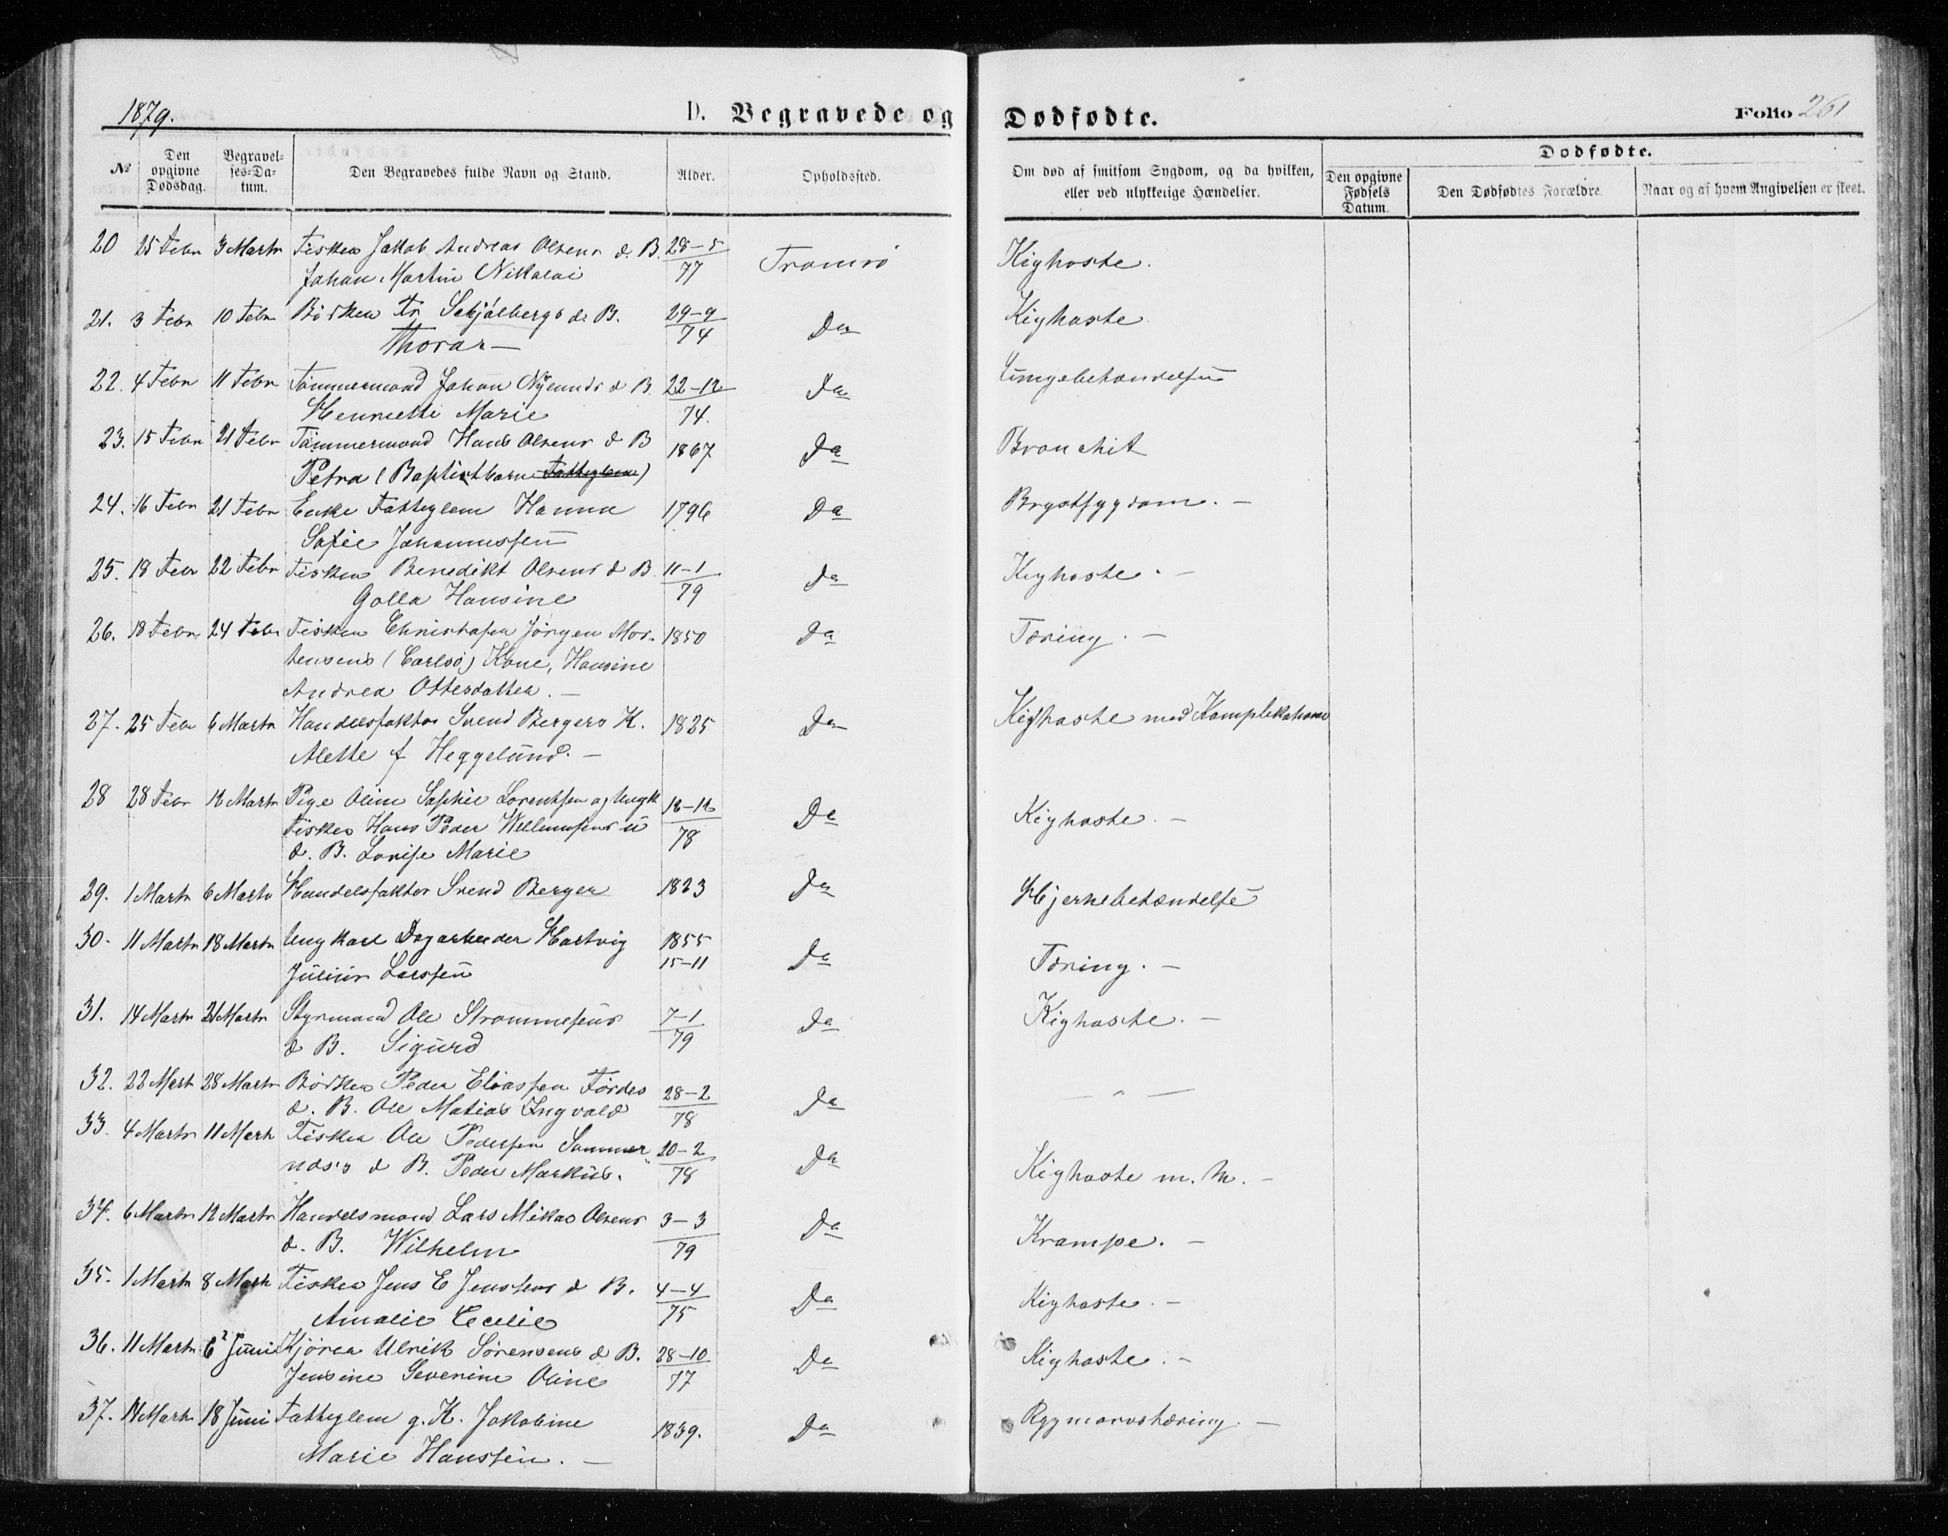 1879. D. Begravede og Dødfødte. Folio 261
№ Den opgivne Dødsdag. Begravelses-Datum. Den Begravedes fulde Navn og Stand. Alder. Opholdssted. Om død af smitsom Sygdom, og da hvilken, eller ved ulykkelige Hændelser. Dødfødte. Den opgivne Fødsels Datum. Den Dødfødtes Forældre. Naar og af hvem Angivelsen er skeet.
20 25 Febr 3 Marts Fisker Jakob Andreas Olsens d. B. 28-5/77 Tromsø Kighoste.
Johan Martin Nikolai
21. 3 Febr 10 Febr Bødker Fr Schjølbergs d. B. 29-9/74 Do Kighoste
Thora —
22. 4 Febr 11 Febr Tømmermand Johan Nylunds d B. 22-12/74. Do Lungebetændelse
Henriette Marie
23. 15 Febr 21 Febr Tømmermand Hans Olsens d B 1867 Do Bronchit
Petra (Baptistbarn Fattiglem)
24. 16 Febr 21 Febr Enke Fattiglem Hanna 1796 Do Brystsygdom. —
Sofie Johannessen
25. 18 Febr 22 Febr Fisker Benedikt Olsens d B 11-1/79 do Kighoste. —
Golla Hansine
26. 18 Febr 24 Febr Fisker Christofer Jørgen Mor- 1850 Do Tæring. —
tensens (Carlsø) Kone, Hansine
Andrea Ottersdatter. —
27. 25 Febr 6 Marts Handelsfaktor Svend Bergers K. 1825 Do Kighoste med Komplikationer
Alette f Heggelund. —
28 28 Febr 12 Marts Pige Oline Sophie Lorentsen og Ungk 12-12/78 Do Kighoste. —
Fisker Hans Peder Willumsens u
d. B. Lovise Marie
29. 1 Marts 6 Marts Handelsfaktor Svend Berger 1823 Do Hjernebetændelse
30. 11 Marts 18 Marts Ungkarl Dagarbeider Hartvig 1855 15-11 Do Tæring. —
Julius Larssen
31. 14 Marts 21 Marts Styrmand Ole Strømmesens 7-1/79 Do Kighoste. —
d B. Sigurd
32. 22 Mart 28 Marts Bødker Peder Eliassen Førdes 28-2/78 Do — " —
d. B. Ole Matias Ingvald
33. 4 Marts 11 Mart Fisker Ole Pedersen Sommer- 20-2/78 Do Kighoste m. M. —
nds's d B. Peder Markus.
34. 6 Marts 12 Marts Handelsmand Lars Mikal Olsens 3-3/79 Do Krampe. —
d. B. Wilhelm
35. 1 Marts 8 Mart Fisker Jens E Jenssens d B. 4-4/75 Do Kighoste. —
Amalie Cecilie
36. 11 Marts 6 Juni Kjører Ulrik Sørensens d B. 28-10/77 Do Kighoste. —
Jensine Severine Oline
37. 14 Marts 18 Juni Fattiglem g. K. Jakobine 1839. Do Rygmarvstæring. —
Marie Hanssen. —